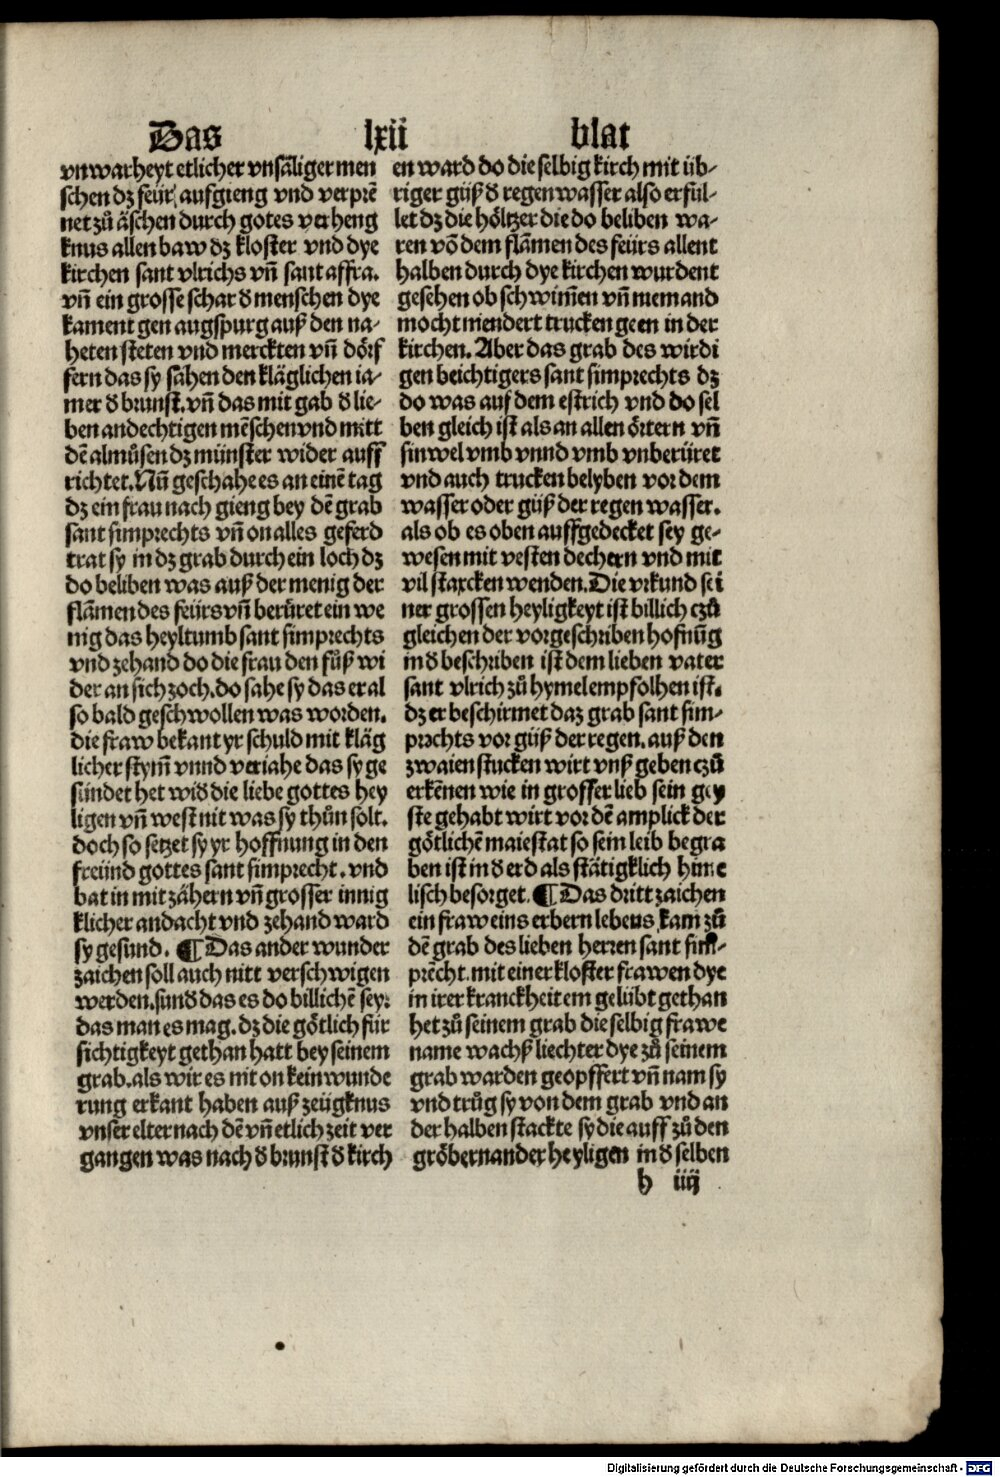 Das lxii blat
vnwarheyt etlicher vnsäliger men
schen dz feür aufgieng vnd verprē
net zů äschen durch gotes verheng
knus allen baw dz kloster vnd dye
kirchen sant vlrichs vñ sant affra.
vñ ein grosse schar d̄ menschen dye
kament gen augspurg auß den na-
heten steten vnd merckten vñ dörf
fern das sy sähen den kläglichen ia-
mer d̄ brunst. vñ das mit gab d̄ lie-
ben andechtigen mēschen vnd mitt
dē almůsen dz münster wider auff
richtet. Nũ geschahe es an einē tag
dz ein frau nach gieng bey dē grab
sant simprechts vñ on alles geferd
trat sy in dz grab durch ein loch dz
do beliben was auß der menig der
flāmen des feürs vñ berüret ein we
nig das heyltumb sant simprechts
vnd zehand do die frau den fůß wi
der an sich zoch. do sahe sy das er al
so bald geschwollen was worden.
die fraw bekant yr schuld mit kläg
licher stym̄ vnnd veriahe das sy ge
sündet het wid̄ die liebe gottes hey
ligen vñ west nit was sy thůn solt.
doch so setzet sy yr hoffnung in den
freünd gottes sant simprecht. vnd
bat in mit zähern vñ grosser innig
klicher andacht vnd zehand ward
sy gesund. ¶ Das ander wunder
zaichen soll auch nitt verschwigen
werden. sund̄ das es do billichē sey:
das man es mag. dz die götlich für
sichtigkeyt gethan hatt bey seinem
grab. als wir es nit on kein wunde
rung erkant haben auß zeügknus
vnser elter nach dē vñ etlich zeit ver
gangen was nach d̄ brunst d̄ kirch
en ward do die selbig kirch mit üb-
riger güß d̄ regen wasser also erfül-
let dz die höltzer die do beliben wa-
ren vō dem flāmen des feürs allent
halben durch dye kirchen wurdent
gesehen ob schwim̄en vñ niemand
mocht niendert trucken geen in der
kirchen. Aber das grab des wirdi
gen beichtigers sant simprechts dz
do was auf dem estrich vnd do sel
ben gleich ist als an allen örtern vñ
sinwel vmb vnnd vmb vnberüret
vnd auch trucken belyben vor dem
wasser oder güß der regen wasser.
als ob es oben auffgedecket sey ge-
wesen mit vesten dechern vnd mit
vil starcken wenden. Die vrkund sei
ner grossen heyligkeyt ist billich czů
gleichen der vorgeschriben hofnũg
in d̄ beschriben ist dem lieben vater
sant vlrich zů hymel empfolhen ist.
dz er beschirmet daz grab sant sim-
prechts vor güß der regen. auß den
zwaien stucken wirt vnß geben czů
erkēnen wie in grosser lieb sein gey
ste gehabt wirt vor dē amplick der
götlichē maiestat so sein leib begra
ben ist in d̄ erd als stätigklich hime
lisch besorget. ¶ Das dritt zaichen
ein fraw eins erbern lebens kam zů
dē grab des lieben herren sant sim-
prēcht. mit einer kloster frawen dye
in irer kranckheit em gelübt gethan
het zů seinem grab die selbig frawe
name wachß liechter dye zů seinem
grab warden geopffert vñ nam sy
vnd trůg sy von dem grab vnd an
der halben stackte sy die auff zů den
gröbern ander heyligen in d̄ selben
h iiij
Digitalisierung gefördert durch die Deutsche Forschungsgemeinschaft - DFG